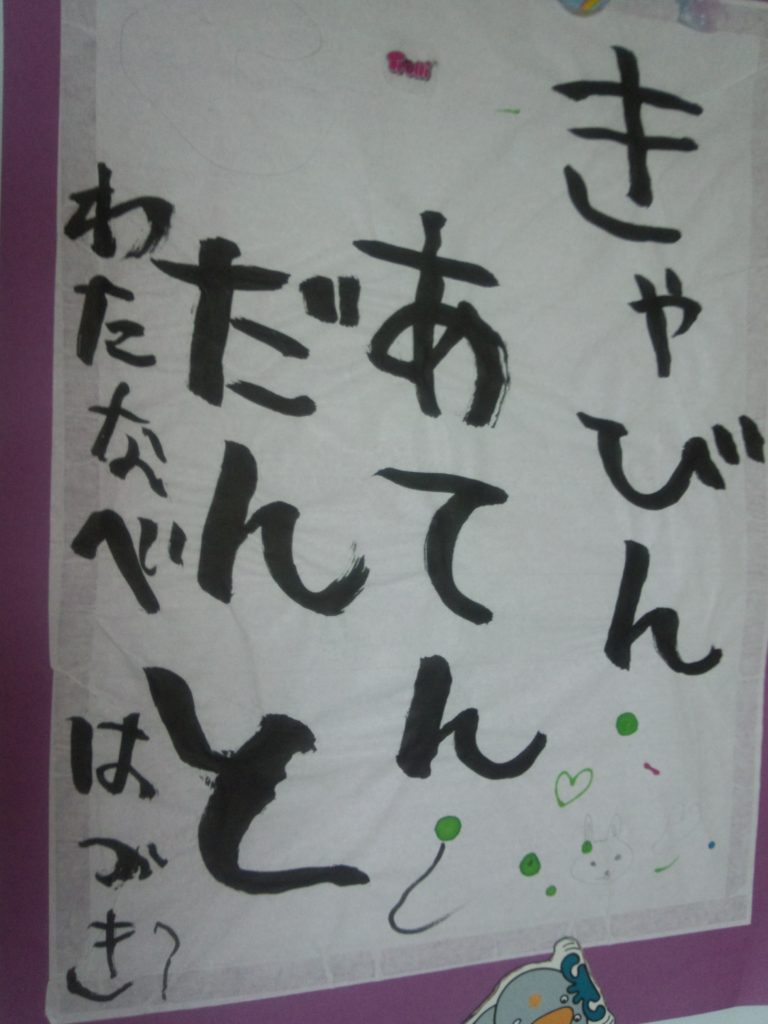 きゃびん
あてん
だんと
わたなべ はづき
Trolli